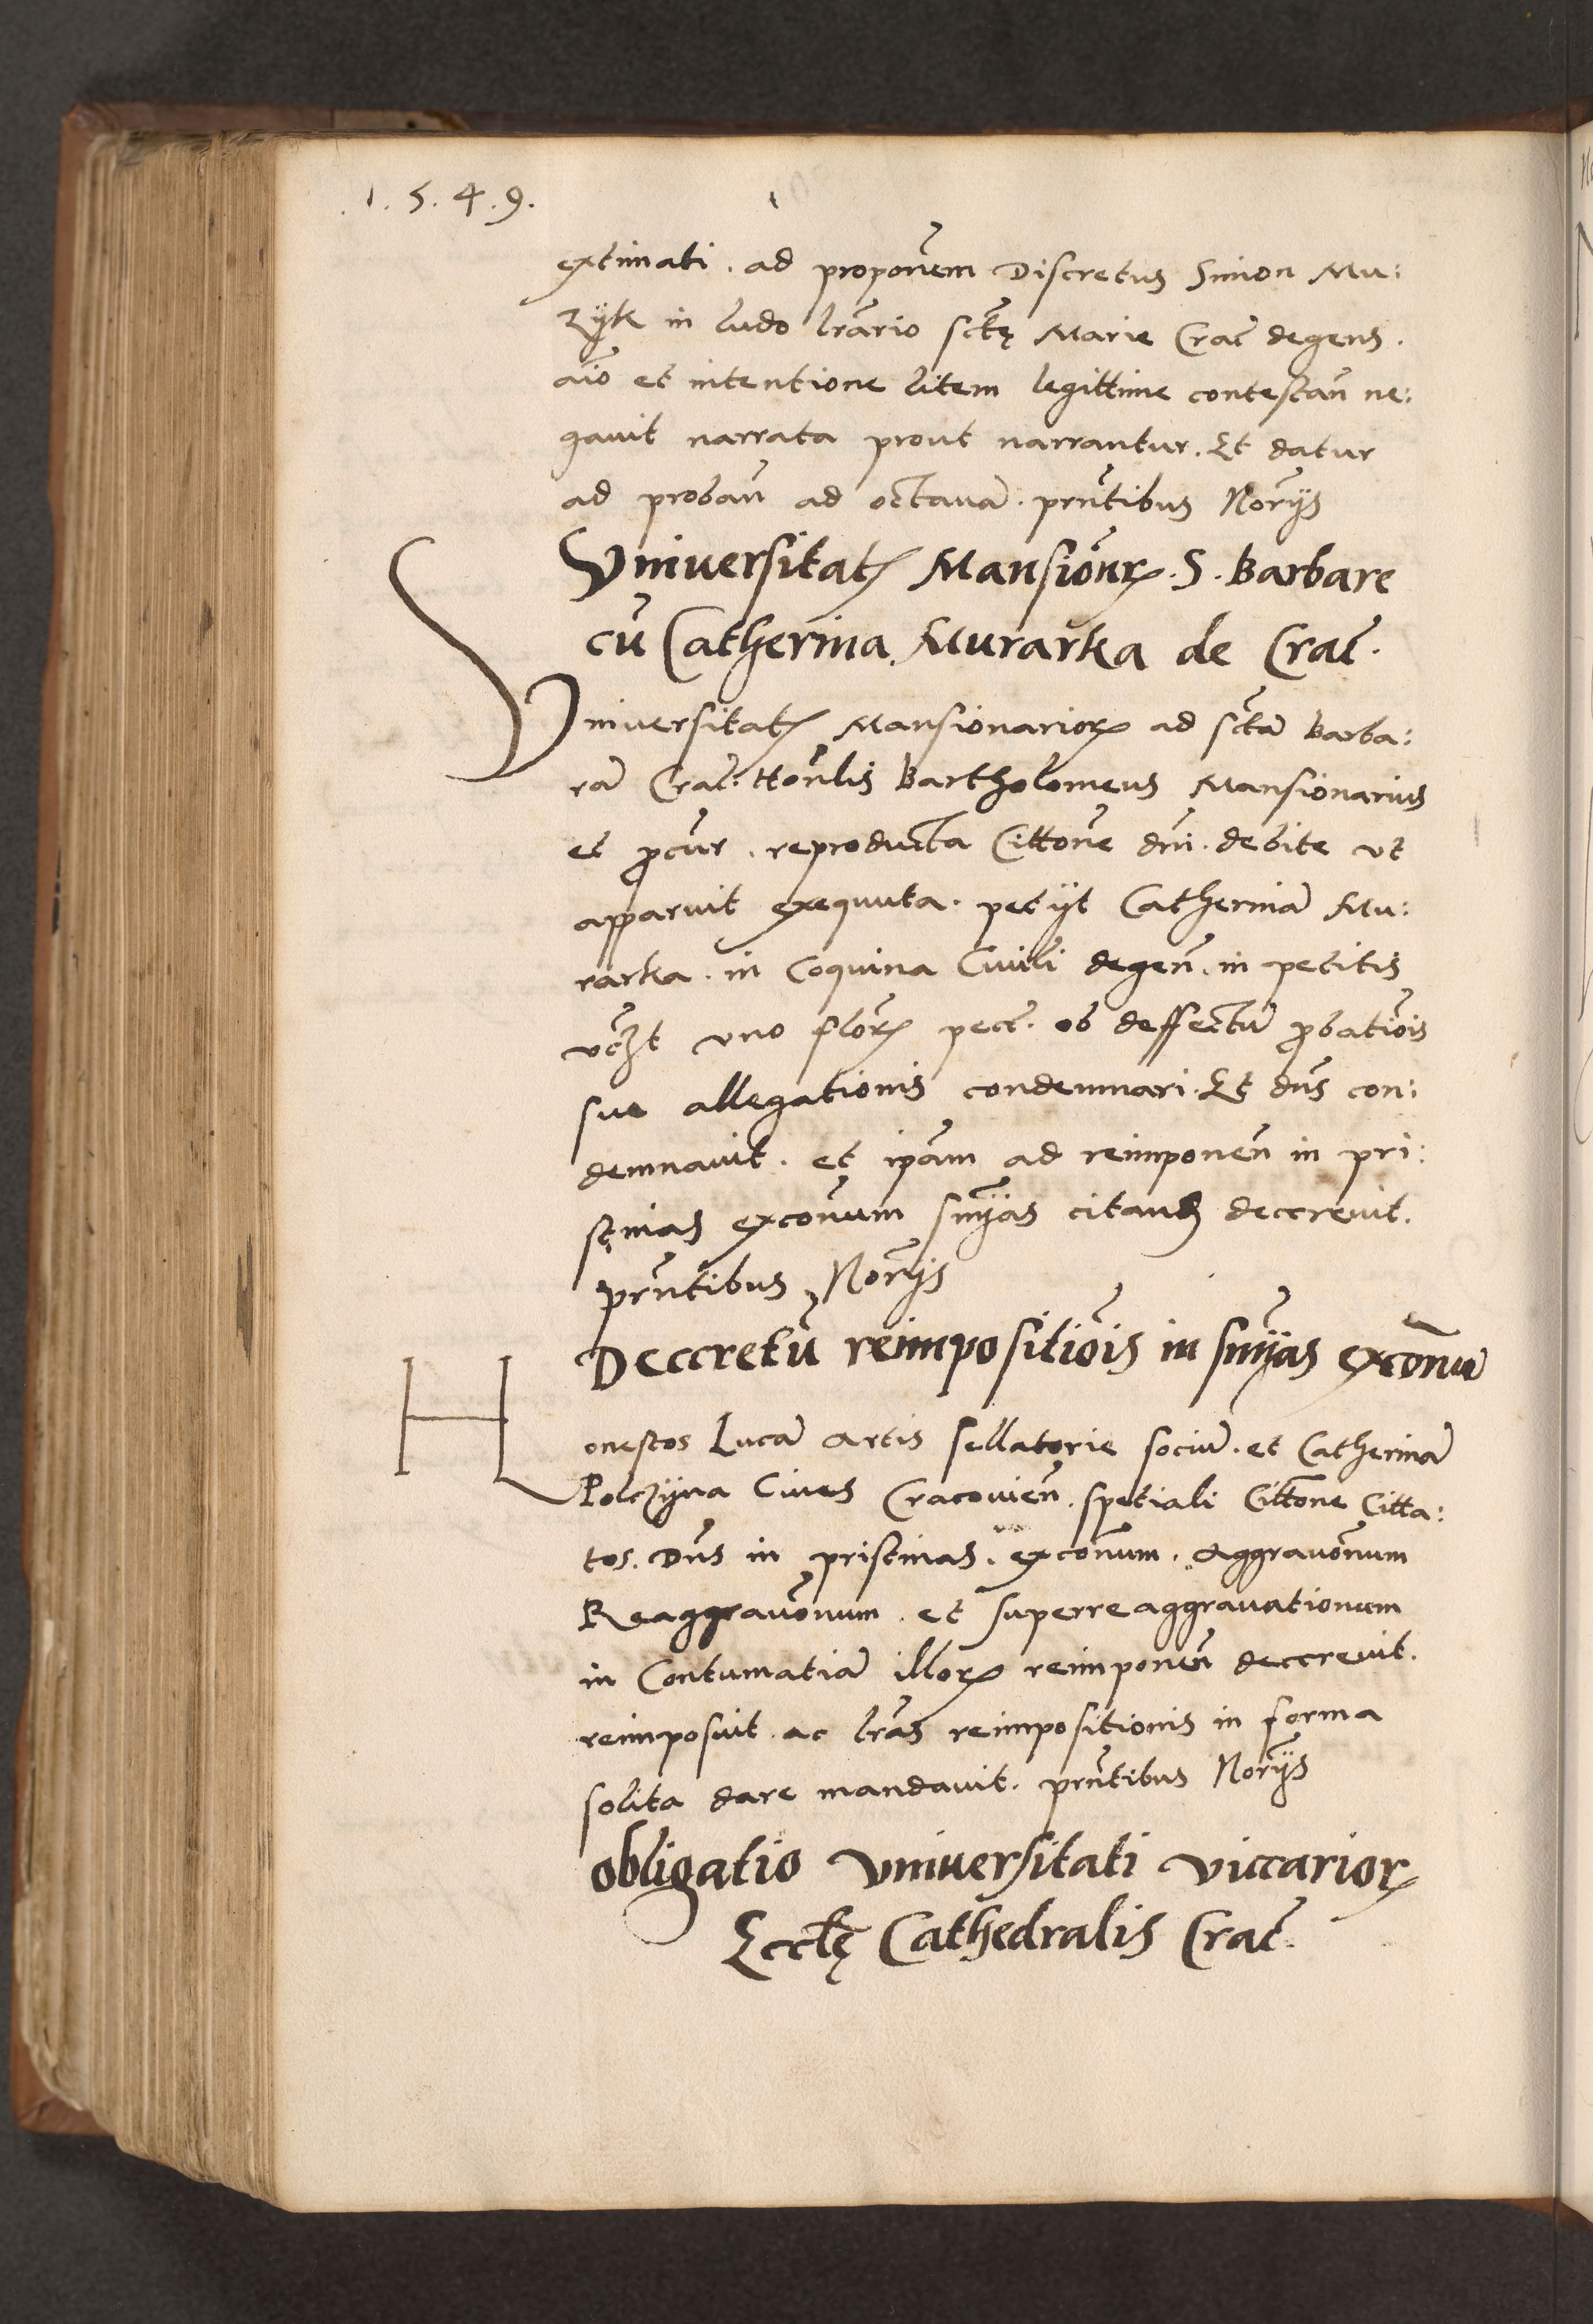 .1.5.4.9.
extimati. ad proponem Discretus Simon Mu:
zyk in ludo lrario sctę Marie Crac degens.
aio et intentione litem legittime contestan ne:
gauit narrata prout narrantur. Et datur
ad proban ad octaua. prntibus Norijs
Vniuersitatꝭ Mansionrꝝ. S. Barbare
cu Catherina Murarka de Crac.
Vniuersitatꝭ Mansionarioꝝ ad scta Barba:
ra Crac. Honlis Bartholomeus Mansionarius
et ꝓcur. reproducta Cittone dni. debite vt
apparuit exequuta. petijt Catherina Mu:
rarka. in Coquina Ciuili degen. in petitis
vczt vno florꝭ pecc. ob deffectu ꝓbatiois
sue allegationis condemnari. Et dns con:
demnauit. et ipam ad reimponen in pri:
stinas exconum snijas citand decreuit.
prntibus Norijs
Deccretu reimpositiois in snijas exconu
Honestos Luca Artis sellatorie sociu. et Catherina
Polczyna Ciues Cracouien. spetiali Cittone Citta:
tos. Dns in pristinas. exconum. Aggrauonum
Reaggrauonum. et superreaggrauationum
in Contumatia illoꝝ reimponen deccreuit.
reimposuit. ac lras reimpositionis in forma
solita dare mandauit. prntibus Norijs
obligatio Vniuersitati Viccarioꝝ
Ecclę Cathedralis Crac.